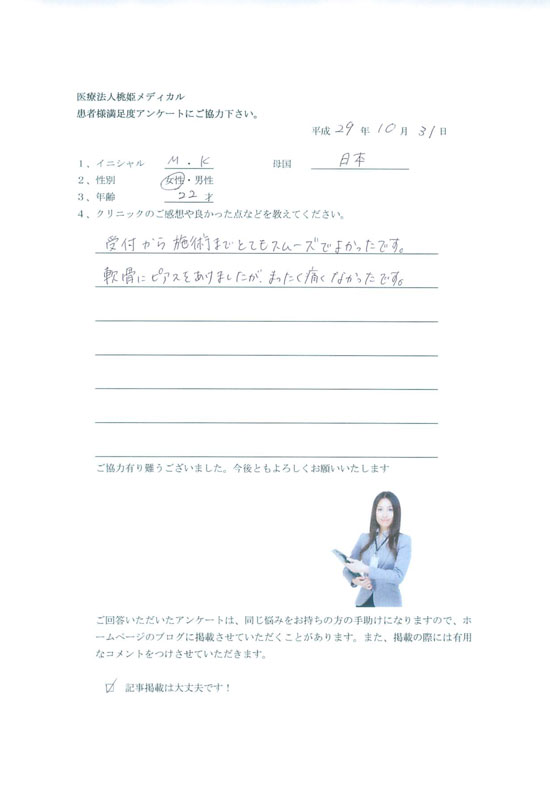 医療法人桃姫メディカル
患者様満足度アンケートにご協力下さい。
平成 29 年 10 月 31 日
1、イニシャル M.K 母国 日本
2、性別 女性・男性
3、年齢 22 才
4、クリニックのご感想や良かった点などを教えてください。
受付から施術までとてもスムーズでよかったです。
軟骨にピアスをあけましたが、まったく痛くなかったです。
ご協力有り難うございました。今後ともよろしくお願いいたします
ご回答いただいたアンケートは、同じ悩みをお持ちの方の手助けになりますので、ホ
ームページのブログに掲載させていただくことがあります。また、掲載の際には有用
なコメントをつけさせていただきます。
☑ 記事掲載は大丈夫です！